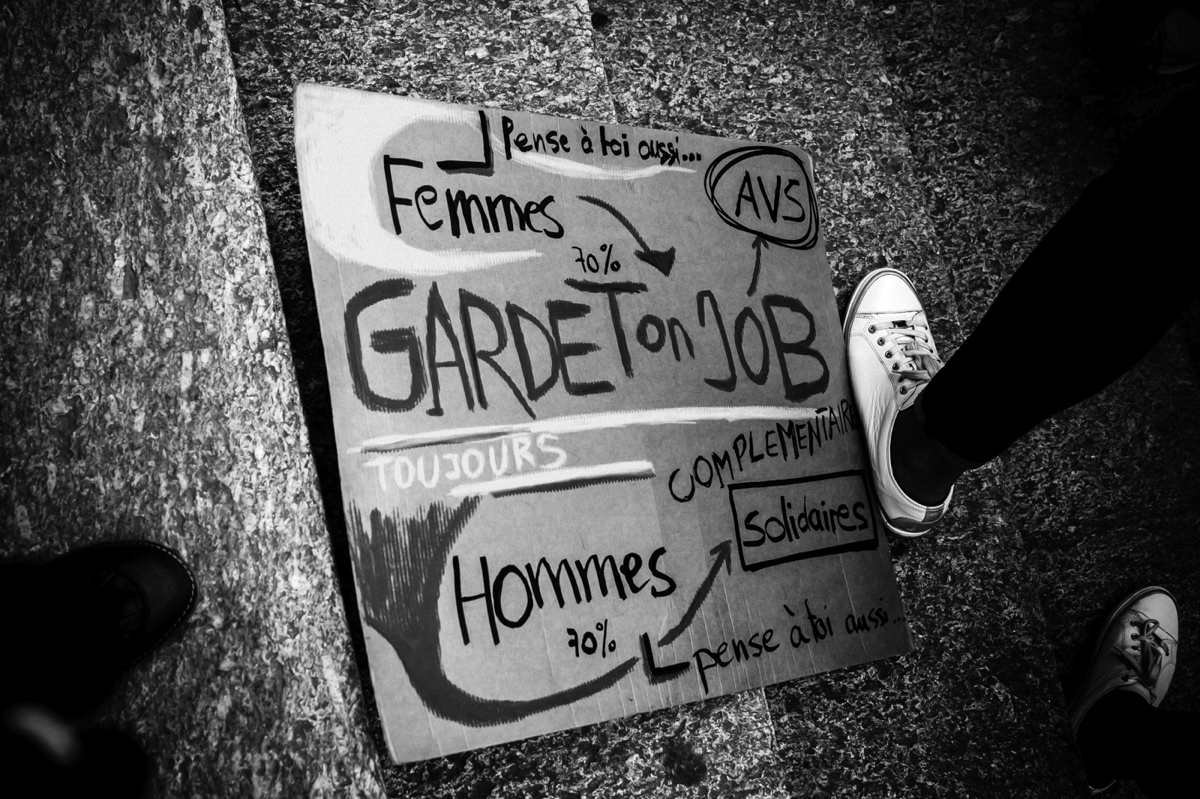 Pense à toi aussi...
Femmes
AVS
70%
GARDE Ton JOB
TOUJOURS
COMPLEMENTAIRE
Solidaires
Hommes
70%
pense à toi aussi...